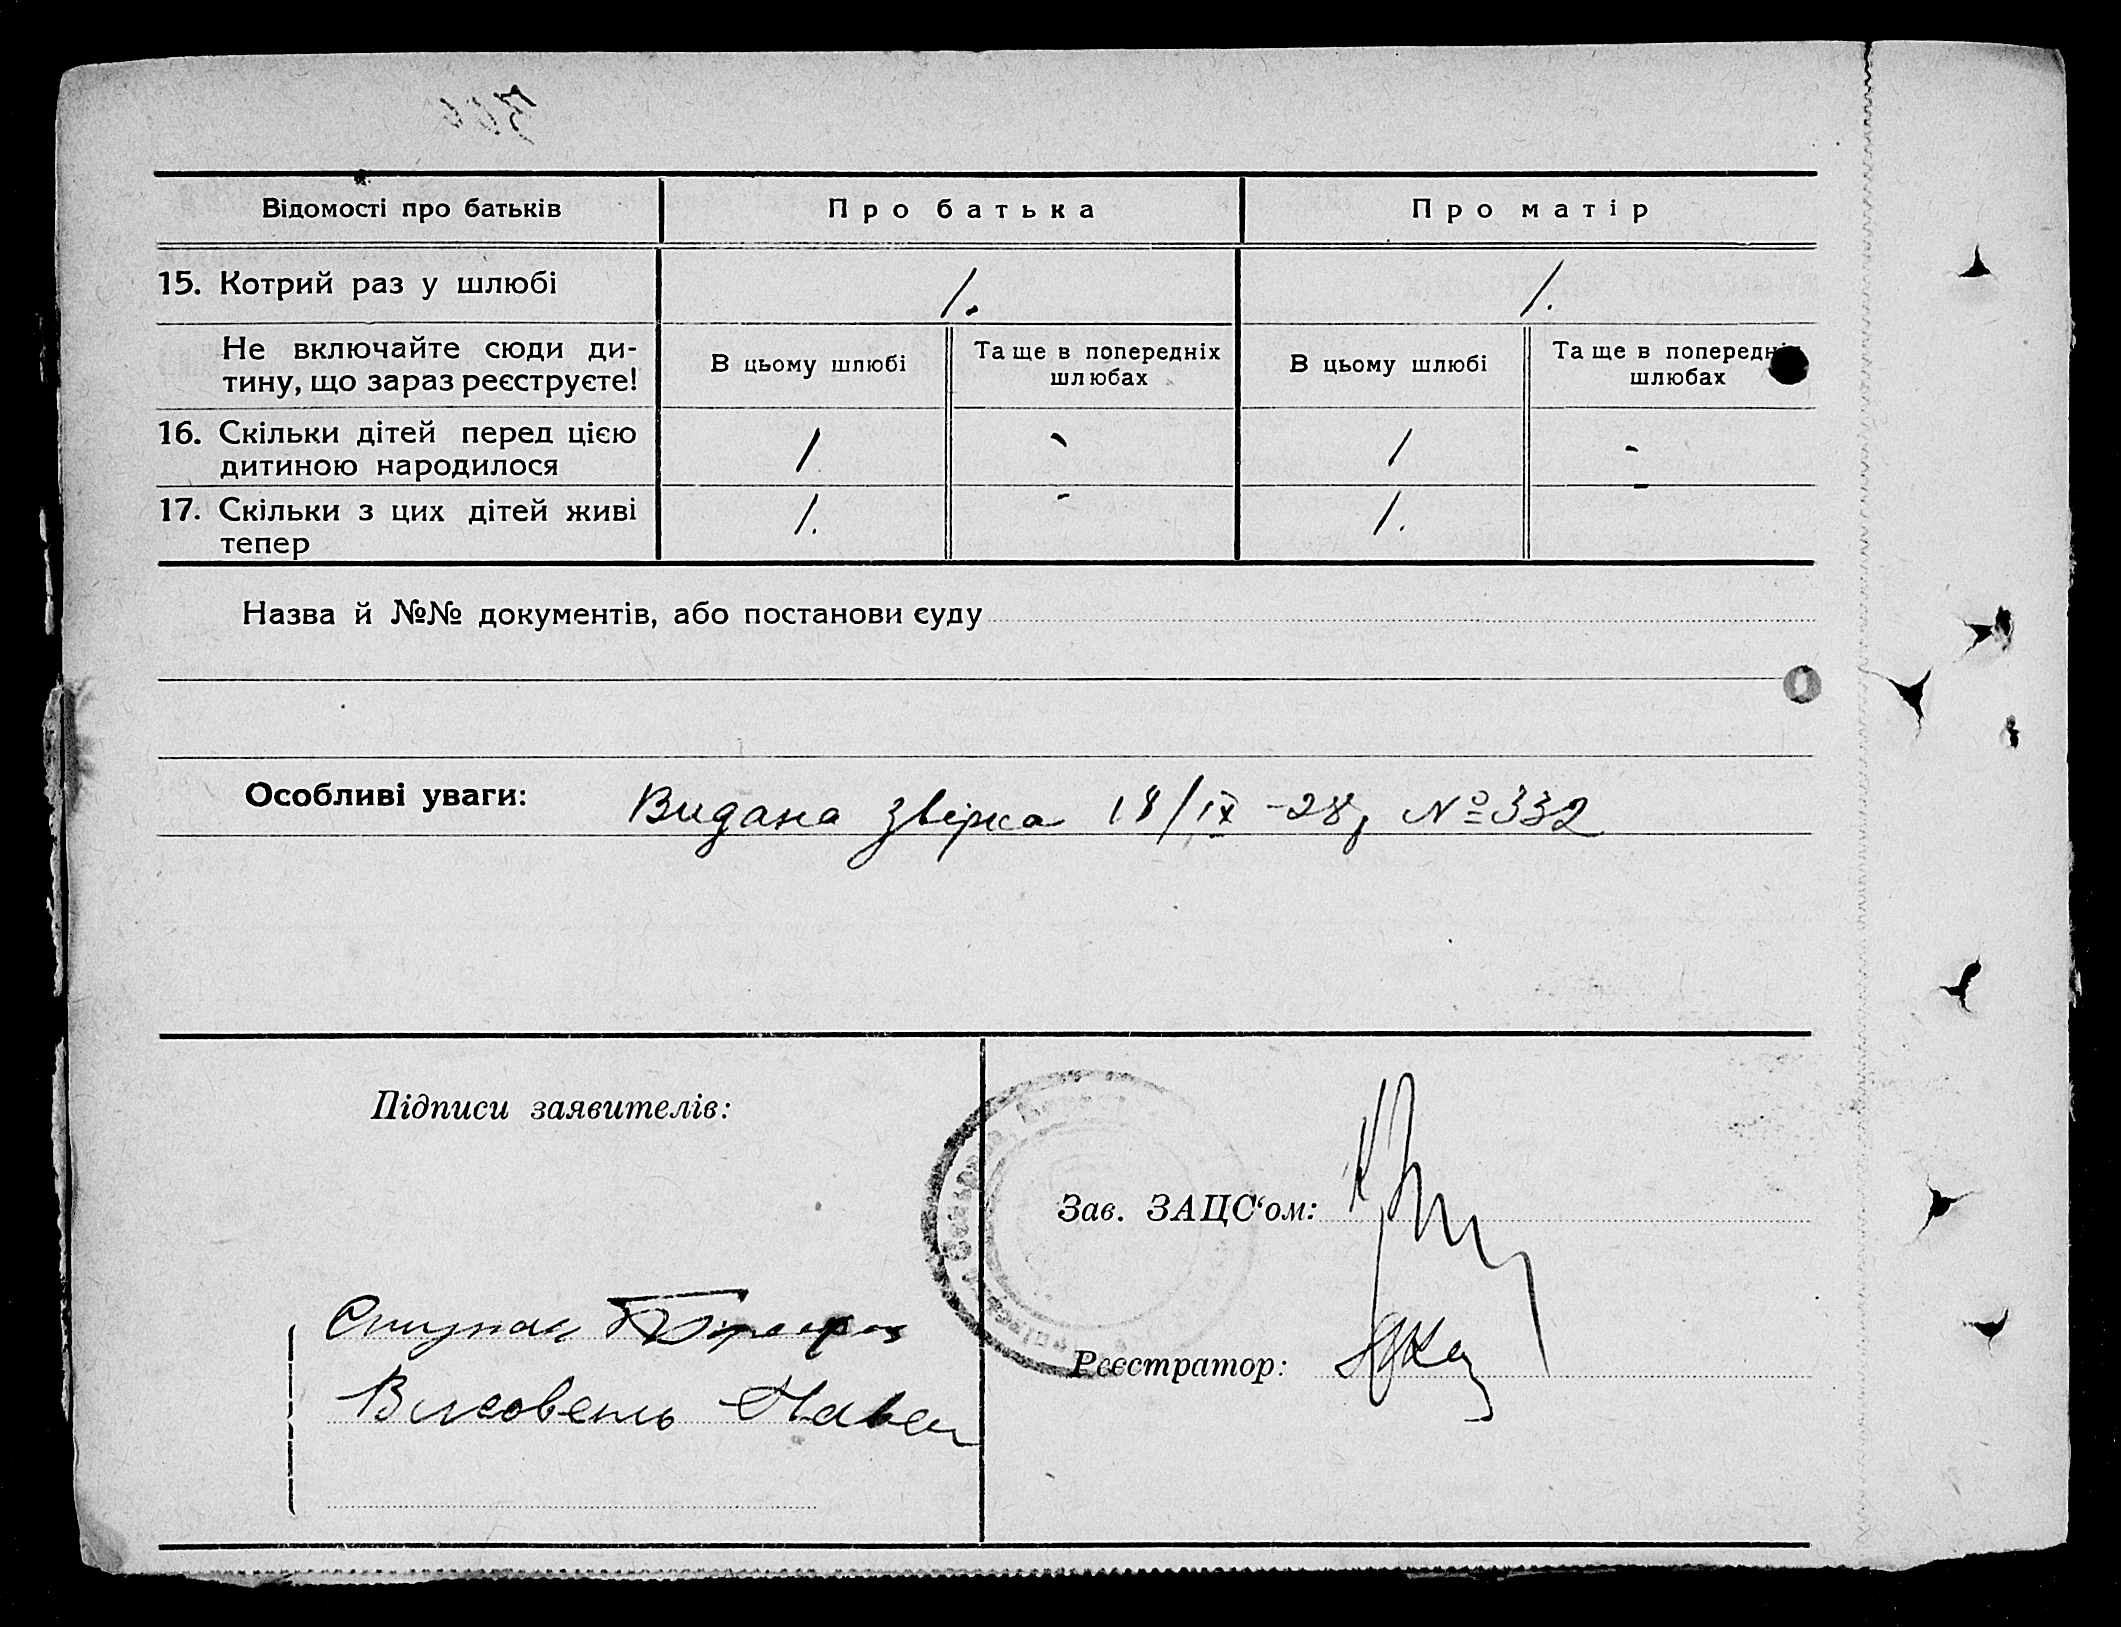 Відомості про батьків
Про батька
Про матір
15. Котрий раз у шлюбі
1.
1.
Не включайте сюди ди-
тину, що зараз реєструєте!
В цьому шлюбі
Та ще в попередніх
шлюбах
В цьому шлюбі
Та ще в попередніх
шлюбах
16. Скільки дітей перед цією
дитиною народилося
1
-
1
-
17. Скільки з цих дітей живі
тепер
1.
-
1.
-
Назва й №№ документів, або постанови суду
Особливі уваги: Видана звірка 18/IX -28, №332
Підписи заявителів:
Зав. ЗАЦС‘ом:
Ступак
Реєстратор:
Павел